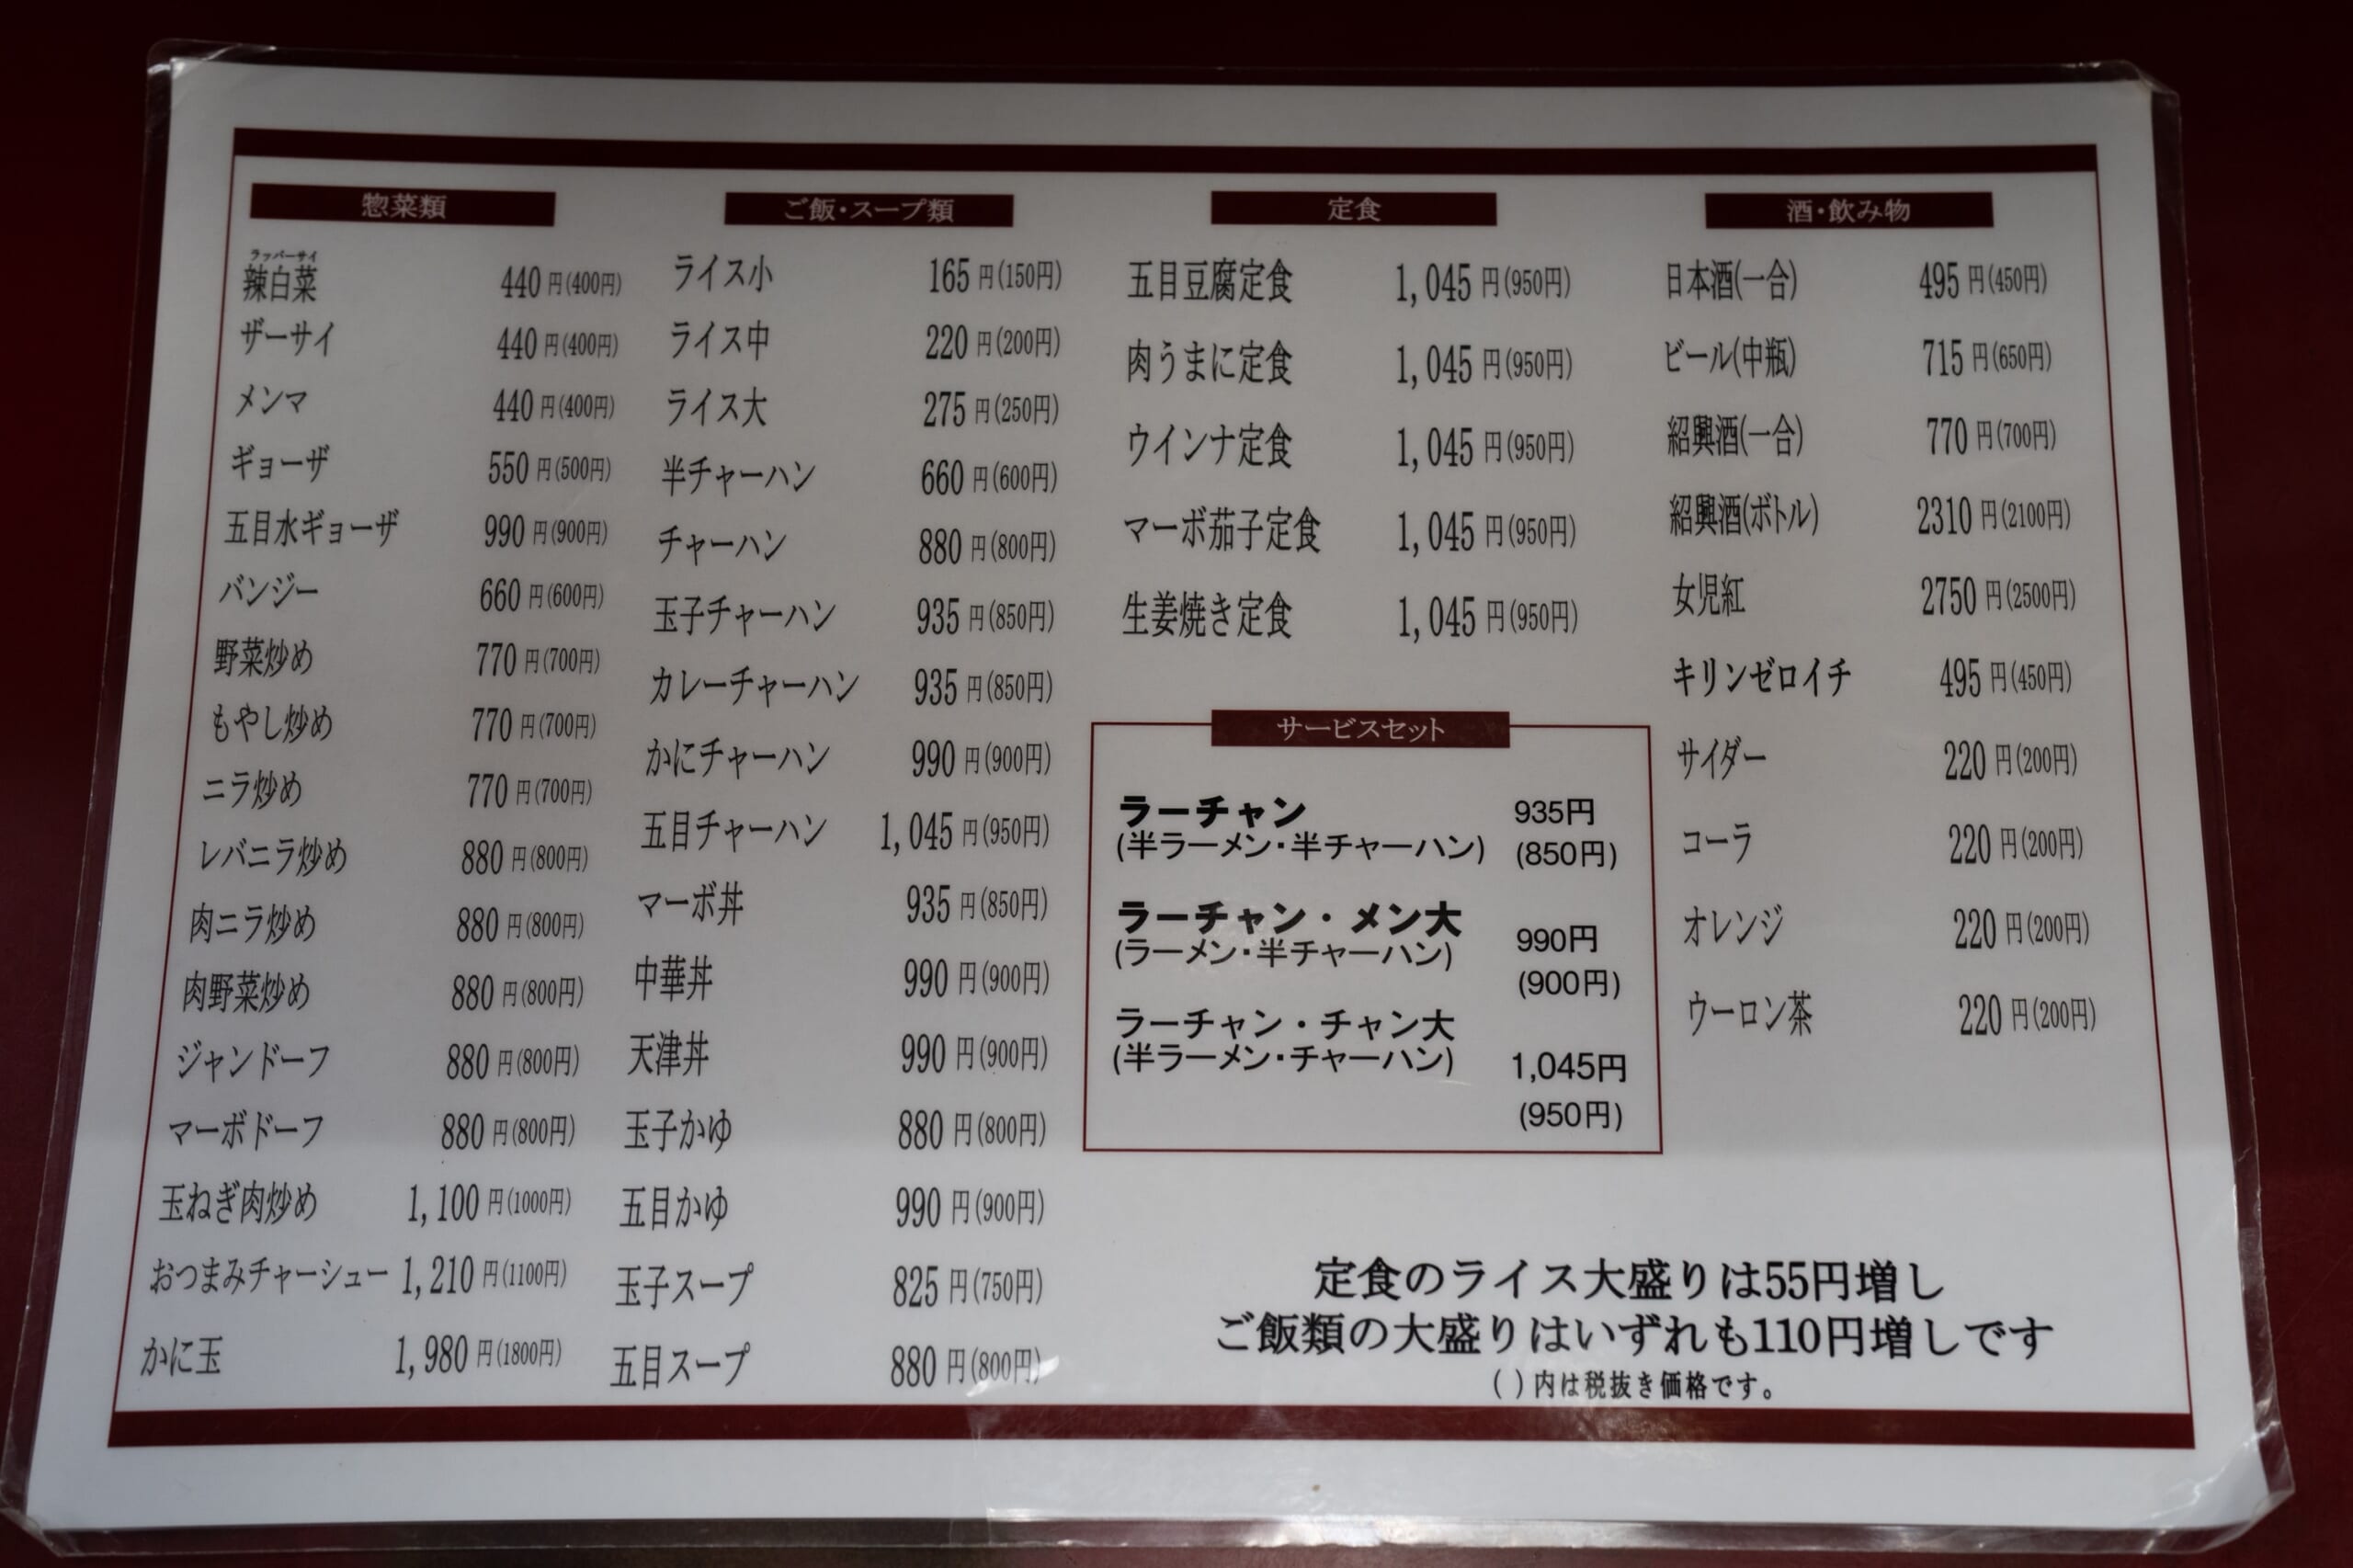 惣菜類
ラッパーサイ
辣白菜 440円(400円)
ザーサイ 440円(400円)
メンマ 440円(400円)
ギョーザ 550円(500円)
五目水ギョーザ 990円(900円)
バンジー 660円(600円)
野菜炒め 770円(700円)
もやし炒め 770円(700円)
ニラ炒め 770円(700円)
レバニラ炒め 880円(800円)
肉ニラ炒め 880円(800円)
肉野菜炒め 880円(800円)
ジャンドーフ 880円(800円)
マーボドーフ 880円(800円)
玉ねぎ肉炒め 1,100円(1000円)
おつまみチャーシュー 1,210円(1100円)
かに玉 1,980円(1800円)
ご飯・スープ類
ライス小 165円(150円)
ライス中 220円(200円)
ライス大 275円(250円)
半チャーハン 660円(600円)
チャーハン 880円(800円)
玉子チャーハン 935円(850円)
カレーチャーハン 935円(850円)
かにチャーハン 990円(900円)
五目チャーハン 1,045円(950円)
マーボ丼 935円(850円)
中華丼 990円(900円)
天津丼 990円(900円)
玉子かゆ 880円(800円)
五目かゆ 990円(900円)
玉子スープ 825円(750円)
五目スープ 880円(800円)
定食
五目豆腐定食 1,045円(950円)
肉うまに定食 1,045円(950円)
ウインナ定食 1,045円(950円)
マーボ茄子定食 1,045円(950円)
生姜焼き定食 1,045円(950円)
サービスセット
ラーチャン 935円
(半ラーメン・半チャーハン) (850円)
ラーチャン・メン大
(ラーメン・半チャーハン) 990円
(900円)
ラーチャン・チャン大
(半ラーメン・チャーハン) 1,045円
(950円)
酒・飲み物
日本酒(一合) 495円(450円)
ビール(中瓶) 715円(650円)
紹興酒(一合) 770円(700円)
紹興酒(ボトル) 2310円(2100円)
女児紅 2750円(2500円)
キリンゼロイチ 495円(450円)
サイダー 220円(200円)
コーラ 220円(200円)
オレンジ 220円(200円)
ウーロン茶 220円(200円)
定食のライス大盛りは55円増し
ご飯類の大盛りはいずれも110円増しです
( )内は税抜き価格です。